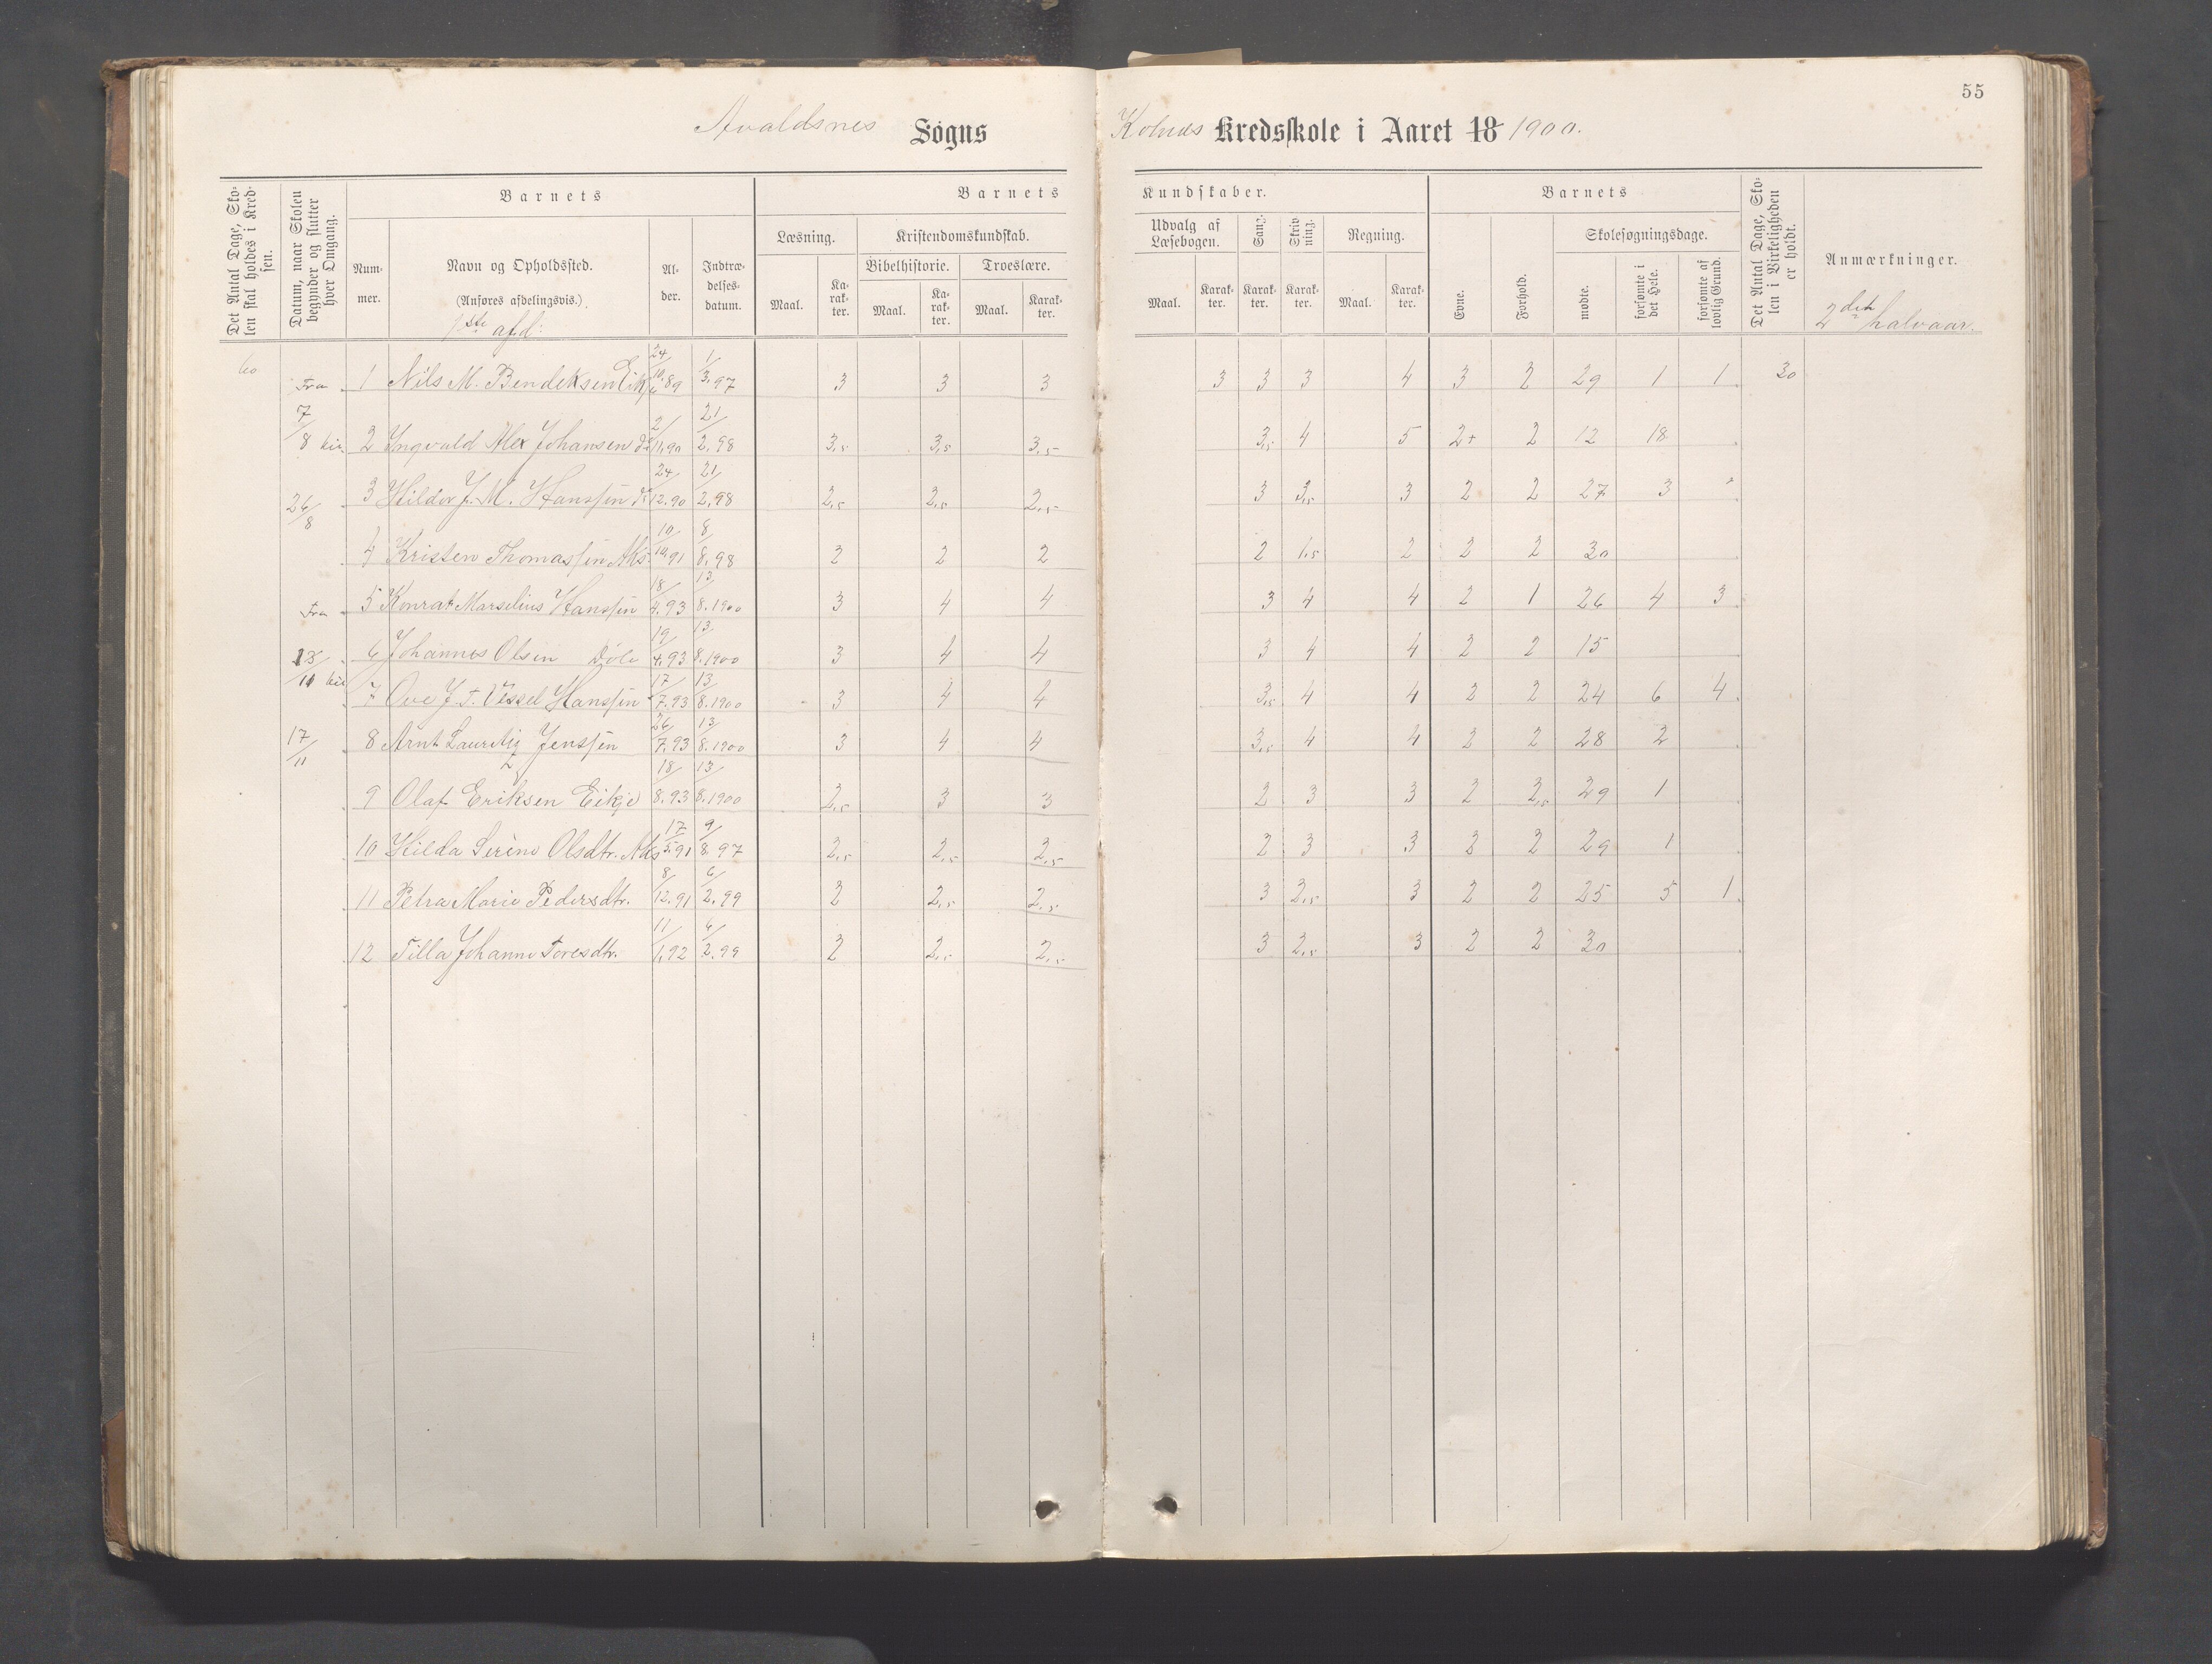 55
Avaldsnes Sogns Kolnes Kredsskole i Aaret 18 1900.
Det Antal Dage, Skolen skal holdes i Kredsen.
Datum, naar Skolen begynder og slutter hver Omgang.
Barnets
Nummer.
Navn og Opholdssted.
(Anføres afdelingsvis.)
1ste afd:
Alder.
Indtrædelsesdatum.
Barnets Kundskaber.
Læsning.
Maal. Karakter.
Kristendomskundskab.
Bibelhistorie. Troeslære.
Maal. Karakter. Maal. Karakter.
Udvalg af Læsebogen.
Maal. Karakter.
Sang. Karakter.
Skrivning. Karakter.
Regning.
Maal. Karakter.
Barnets
Evne. Forhold.
Skolesøgningsdage.
mødte. forsømte i det Hele. forsømte af lovlig Grund.
Det Antal Dage, Skolen i Virkeligheden er holdt.
Anmærkninger.
2det halvaar.
60 Fra 1 Nils M. Bendiksen Eikje 24/10.89 1/3.97 3 3 3 3 3 3 4 3 2 29 1 1 30
7/8 til 2 Yngvald Alex Johansen do 2/11.90 21/2.98 3,5 3,5 3,5 3,5 4 5 2+ 2 12 18
26/8 3 Hildor J. M. Hanssen do 24/12.90 21/2.98 2,5 2,5 2,5 3 3,5 3 2 2 27 3
4 Kristen Thomassen Aks. 10/10.91 8/8.98 2 2 2 2 1,5 2 2 2 30
Fra 5 Konrat Marselius Hanssen 18/4.93 13/8.1900 3 4 4 3 4 4 2 1 26 4 3
6 Johannes Olsen 19/4.93 13/8.1900 3 4 4 3 4 4 2 2 15
7 Ove J. T. Vessel Hanssen 17/7.93 13/8.1900 3 4 4 3,5 4 4 2 2 24 6 4
17/11 8 Arnt Lauritz Jenssen 26/7.93 13/8.1900 3 4 4 3,5 4 4 2 2 28 2
9 Olaf Eriksen Eikje 18/8.93 13/8.1900 2,5 3 3 2 3 3 2 2,5 29 1
10 Hilda Serine Olsdtr. Aks 17/5.91 9/8.97 2,5 2,5 2,5 2 3 3 2 2 29 1
11 Petra Marie Pedersdtr. 8/12.91 6/2.99 2 2,5 2,5 3 2,5 3 2 2 25 5 1
12 Tilla Johanne Toresdtr. 11/1.92 6/2.99 2 2,5 2,5 3 2,5 3 2 2 30